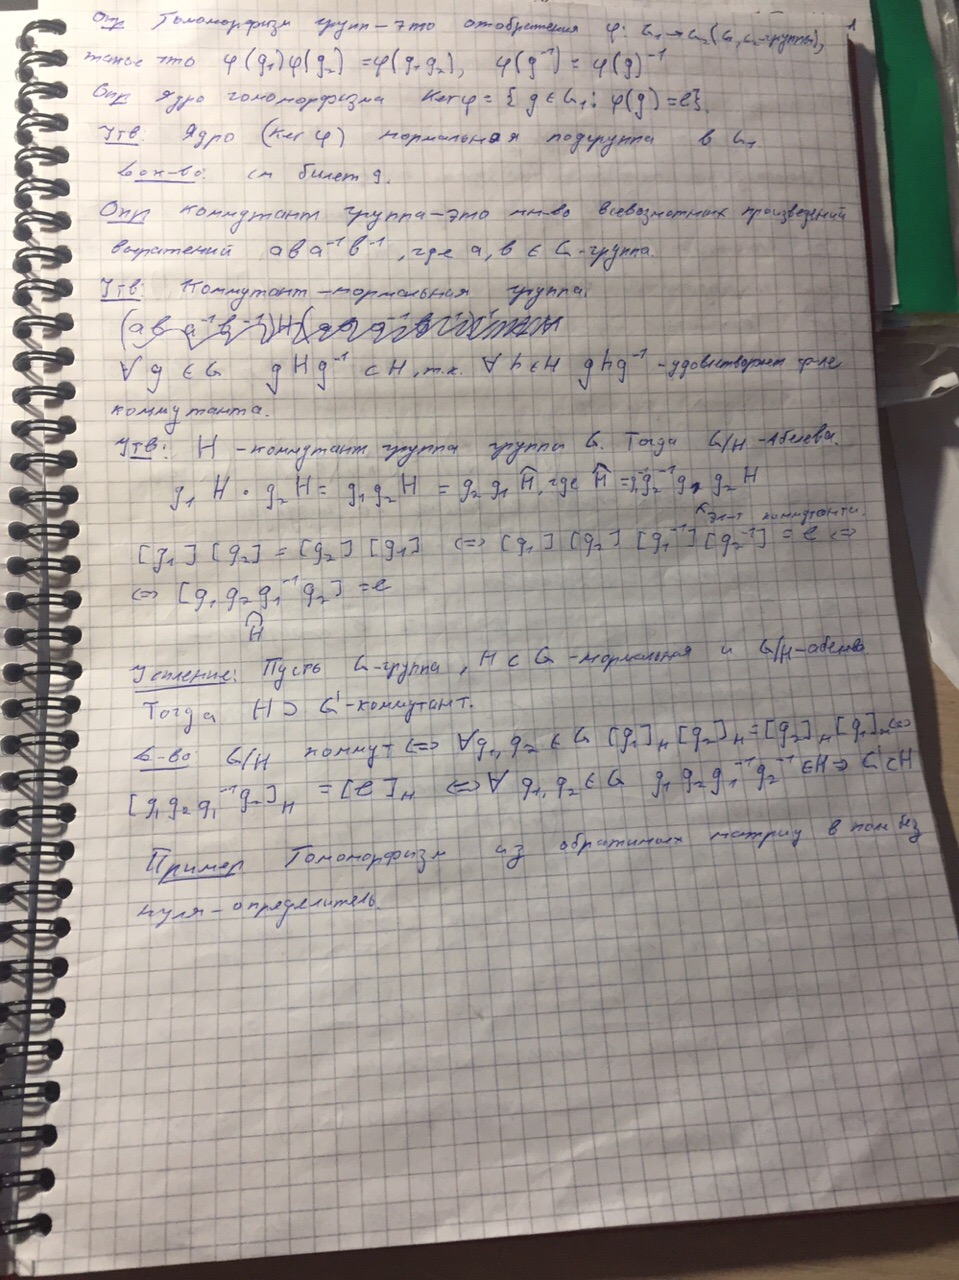 Опр Гомоморфизм групп – это отображения φ: G₁→G₂ (G₁,G₂-группы), 1
такое что φ(g₁)φ(g₂) = φ(g₁g₂), φ(g⁻¹) = φ(g)⁻¹
Опр Ядро гомоморфизма Ker φ = { g ∈ G₁: φ(g) = e}.
Утв: Ядро (Ker φ) нормальная подгруппа в G₁
Док-во: см билет 9.
Опр Коммутант группа – это мн-во всевозможных произведений
выражений aba⁻¹b⁻¹, где a, b ∈ G-группа.
Утв: Коммутант – нормальная группа.
∀ g ∈ G gHg⁻¹ ⊂ H, т.к. ∀ h ∈ H ghg⁻¹ - удовлетворяет ф-ле
коммутанта.
Утв: H – коммутант группа группы G. Тогда G/H – абелева.
g₁ H · g₂ H = g₁ g₂ H = g₂ g₁ Ĥ, где Ĥ = g₂⁻¹ g₁ g₂ H
эл-т коммутанта.
[g₁] [g₂] = [g₂] [g₁] ⇔ [g₁] [g₂] [g₁⁻¹] [g₂⁻¹] = e ⇔
⇔ [g₁ g₂ g₁⁻¹ g₂] = e
H
Усиление: Пусть G-группа, H ⊂ G – нормальная и G/H – абелева.
Тогда H ⊃ G' - коммутант.
Д-во G/H коммут ⇔ ∀g₁, g₂ ∈ G [g₁]_H [g₂]_H = [g₂]_H [g₁]_H ⇔
[g₁ g₂ g₁⁻¹ g₂]_H = [e]_H ⇔ ∀ g₁, g₂ ∈ G g₁ g₂ g₁⁻¹ g₂⁻¹ ∈ H ⇒ G' ⊂ H
Пример Гомоморфизм из обратимых матриц в поле без
нуля – определитель.